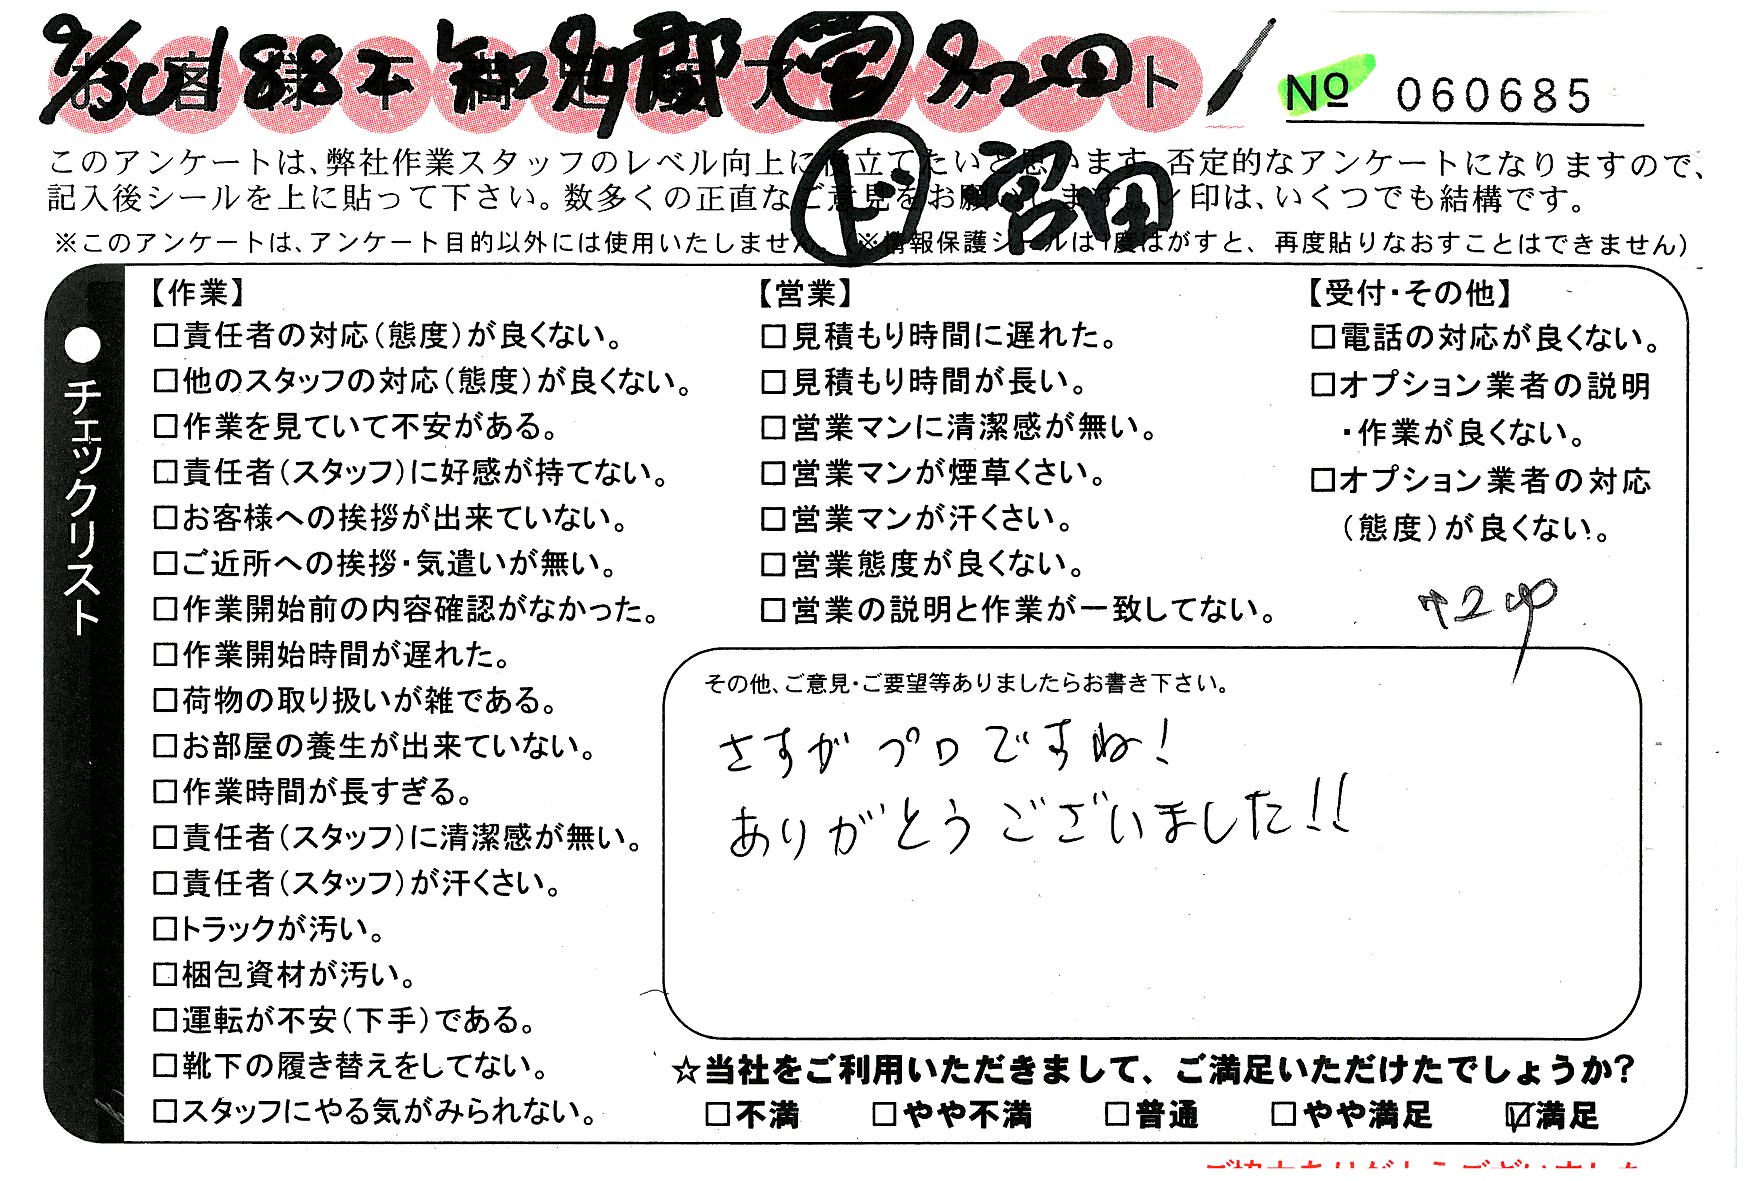 9/30 188工 知多郡 営 多和田
No 060685
ド 沼田
このアンケートは、弊社作業スタッフのレベル向上に役立てたいと思います。否定的なアンケートになりますので、
記入後シールを上に貼って下さい。数多くの正直なご意見をお願いします。レ印は、いくつでも結構です。
※このアンケートは、アンケート目的以外には使用いたしません。(※情報保護シールは1度はがすと、再度貼りなおすことはできません)
●チェックリスト
【作業】
□責任者の対応(態度)が良くない。
□他のスタッフの対応(態度)が良くない。
□作業を見ていて不安がある。
□責任者(スタッフ)に好感が持てない。
□お客様への挨拶が出来ていない。
□ご近所への挨拶・気遣いが無い。
□作業開始前の内容確認がなかった。
□作業開始時間が遅れた。
□荷物の取り扱いが雑である。
□お部屋の養生が出来ていない。
□作業時間が長すぎる。
□責任者(スタッフ)に清潔感が無い。
□責任者(スタッフ)が汗くさい。
□トラックが汚い。
□梱包資材が汚い。
□運転が不安(下手)である。
□靴下の履き替えをしてない。
□スタッフにやる気がみられない。
【営業】
□見積もり時間に遅れた。
□見積もり時間が長い。
□営業マンに清潔感が無い。
□営業マンが煙草くさい。
□営業マンが汗くさい。
□営業態度が良くない。
□営業の説明と作業が一致してない。
【受付・その他】
□電話の対応が良くない。
□オプション業者の説明
・作業が良くない。
□オプション業者の対応
(態度)が良くない。
その他、ご意見・ご要望等ありましたらお書き下さい。
さすが プロですね!
ありがとうございました!!
☆当社をご利用いただきまして、ご満足いただけたでしょうか?
□不満 □やや不満 □普通 □やや満足 ☑満足
ご協力ありがとうございました